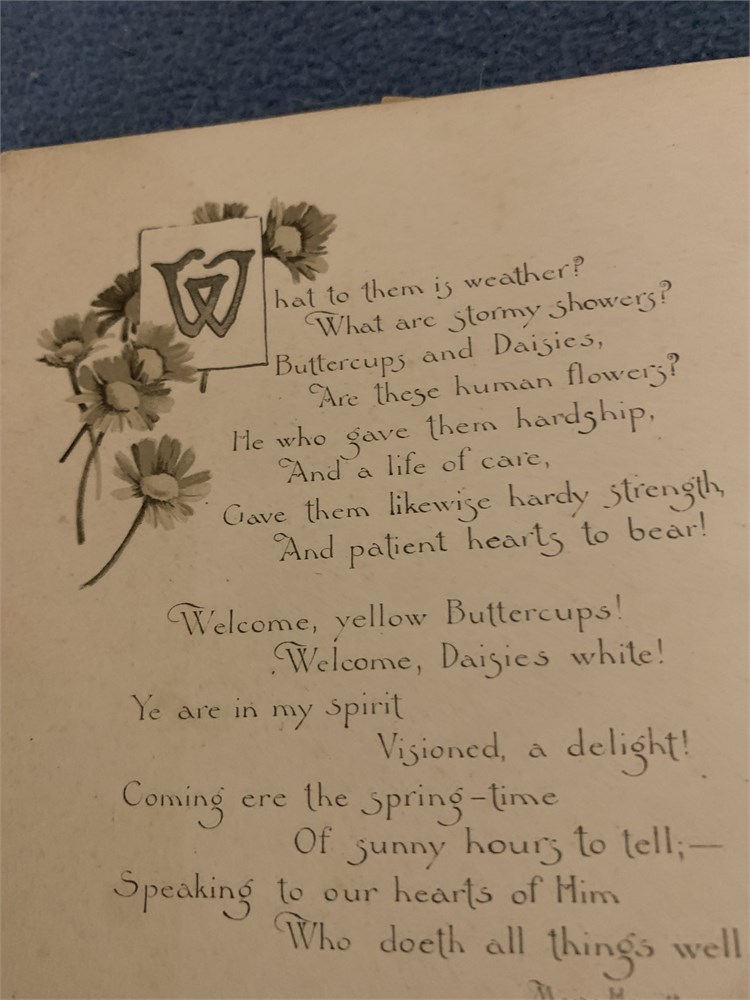 What to them is weather?
What are stormy showers?
Buttercups and Daisies,
Are these human flowers?
He who gave them hardship,
And a life of care,
Gave them likewise hardy strength,
And patient hearts to bear!
Welcome, yellow Buttercups!
Welcome, Daisies white!
Ye are in my spirit
Visioned, a delight!
Coming ere the spring-time
Of sunny hours to tell;—
Speaking to our hearts of Him
Who doeth all things well